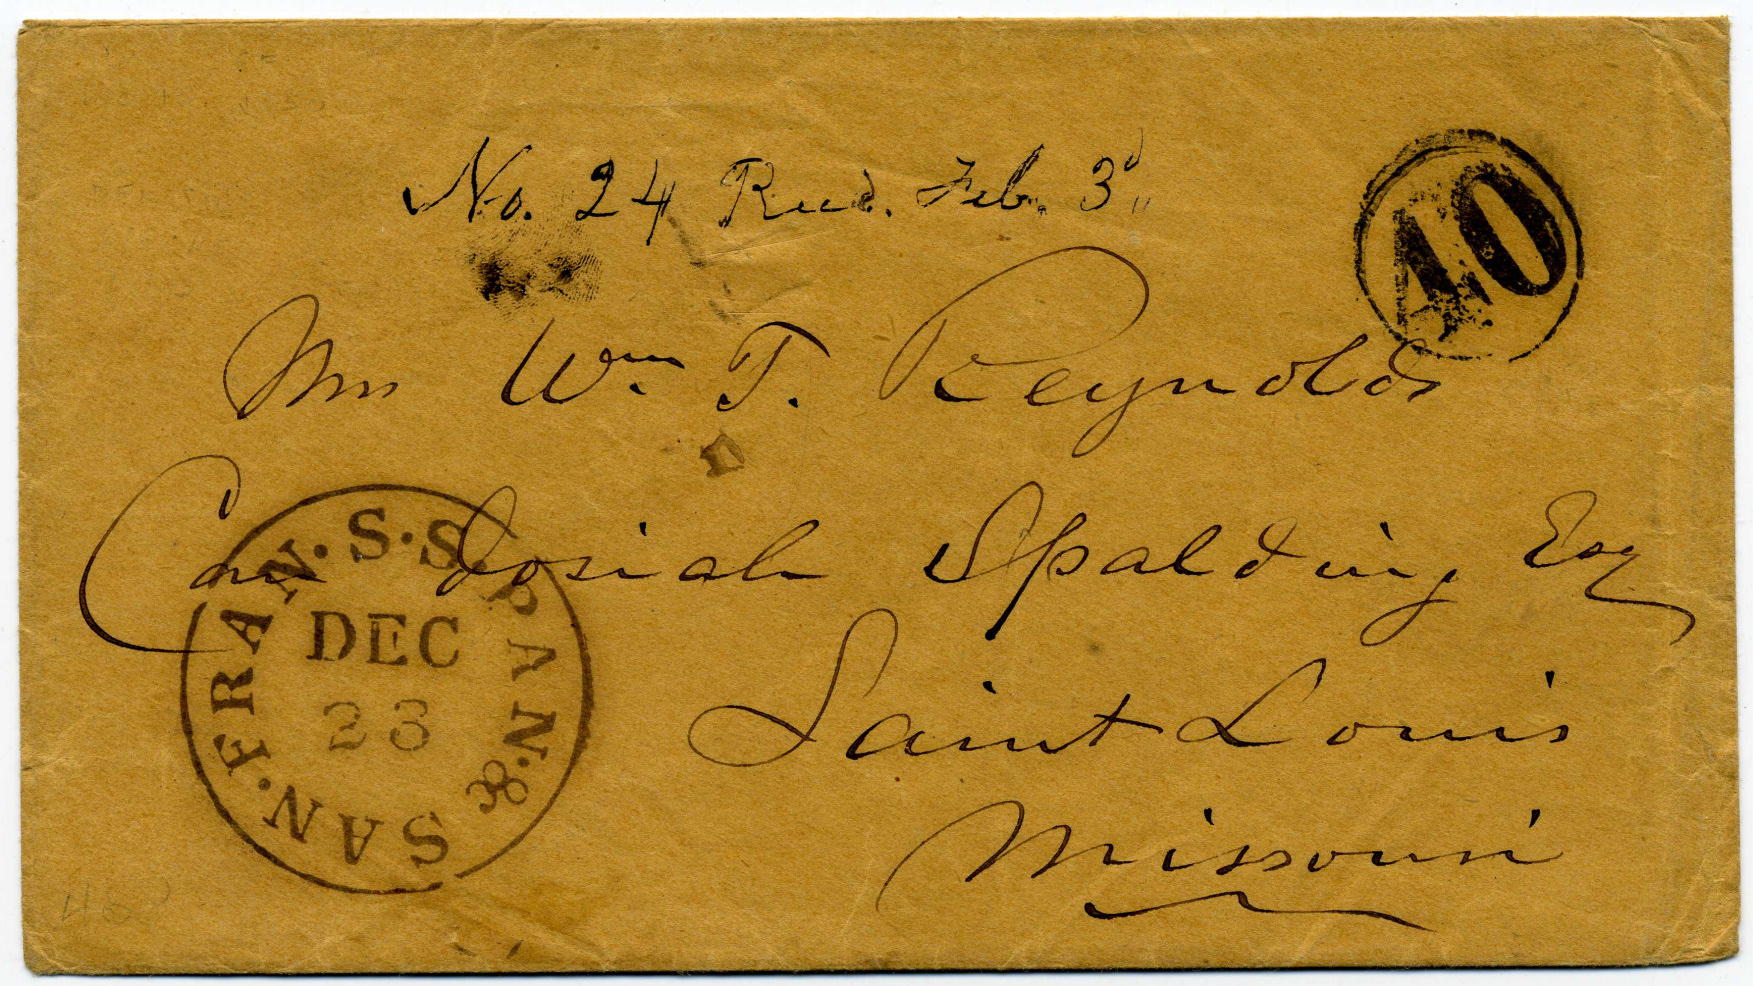 No. 24 Recd. Feb. 3d
40
Mr Wm T. Reynolds
Care Josiah Spalding Esq
SAN. FRAN. S. S. PAN. N. &
DEC
23
Saint Louis
Missouri